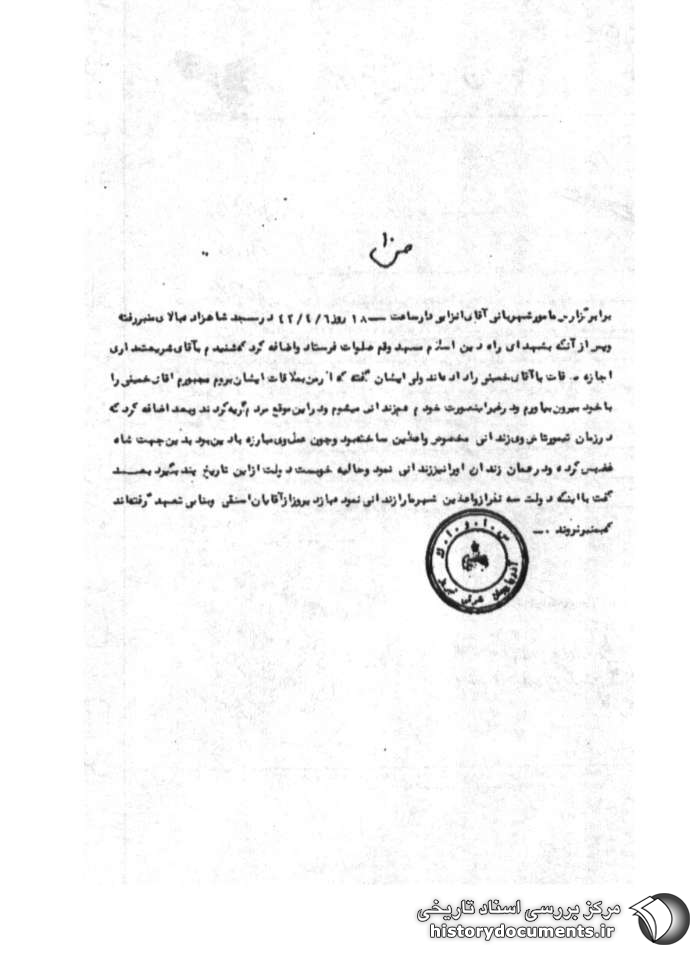 برابر گزارش مامور شهربانی آقای انزابی در ساعت ۱۸ روز ۴۲/۴/۶ در مسجد شاهزاده بالای منبر رفته
وپس از آنکه بشهدای راه دین اسلام مسجد وقم صلوات فرستاد واضافه کرد که شنیدم بآقای شریعتمداری
اجازه ملاقات با آقای خمینی را داده اند ولی ایشان گفته که اگر من بملاقات ایشان بروم مجبورم آقای خمینی را
با خود بیرون بیاورم ودر غیر اینصورت خودم هم زندانی میشوم ودر این موقع مردم گریه کردند وبعد اضافه کرد که
در زمان تیمورتاش وی زندانی مخصوص واعظین ساخته بود وچون عمل وی مبارزه با دین بود بدین جهت شاه
غضبش کرده ودر همان زندان اورا نیز زندانی نمود وحالیه خوبست دولت از این تاریخ پند بگیرد بعد
گفت با اینکه دولت سه نفر از واعظین شهر ما را زندانی نمود دیروز از آقایان وبنابی تعهد گرفته اند
که بمنبر نروند .
س . ا . و . ا . ک
آذربایجان شرقی تبریز
مرکز بررسی اسناد تاریخی
historydocuments.ir